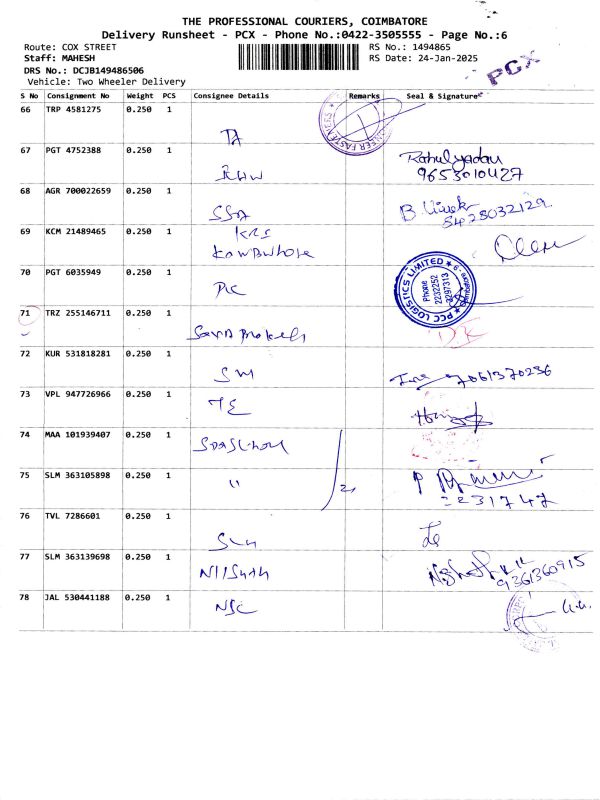 THE PROFESSIONAL COURIERS, COIMBATORE
Delivery Runsheet - PCX - Phone No.:0422-3505555 - Page No.:6
Route: COX STREET
RS No.: 1494865
Staff: MAHESH
RS Date: 24-Jan-2025
DRS No.: DCJB149486506
Vehicle: Two Wheeler Delivery
PCX
S No Consignment No Weight PCS Consignee Details Remarks Seal & Signature
66 TRP 4581275 0.250 1
67 PGT 4752388 0.250 1 Rahul yadav
9653010427
68 AGR 700022659 0.250 1 SSA B. Vivek
8428032129
69 KCM 21489465 0.250 1 KRS
70 PGT 6035949 0.250 1 PCC LOGISTICS LIMITED
Phone
2232252
2297313
71 TRZ 255146711 0.250 1
DK
72 KUR 531818281 0.250 1 SM 7061370236
73 VPL 947726966 0.250 1 TE
74 MAA 101939407 0.250 1
75 SLM 363105898 0.250 1 "
2231747
76 TVL 7286601 0.250 1
77 SLM 363139698 0.250 1
9361360915
78 JAL 530441188 0.250 1 NSC